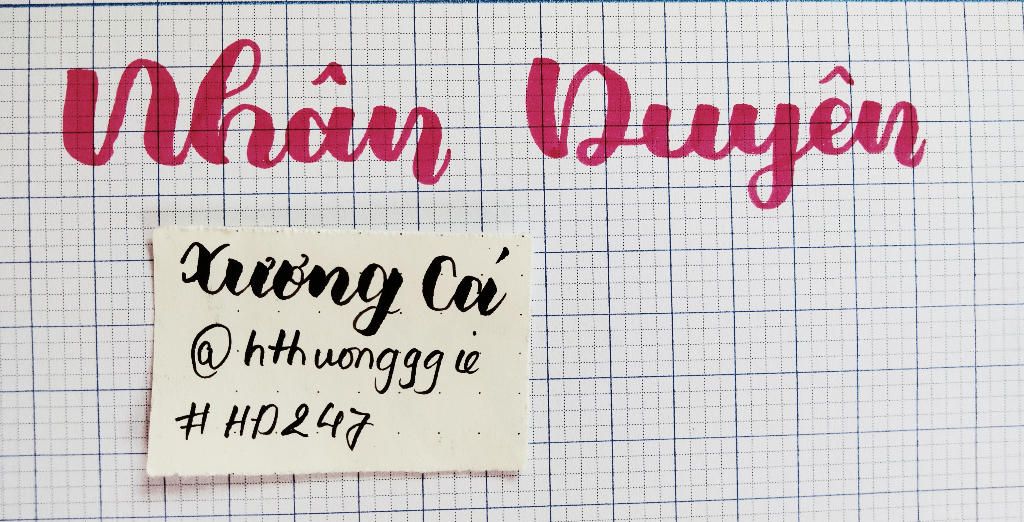 Nhân Duyên
Xương Cá
@hthuongggie
#HD247